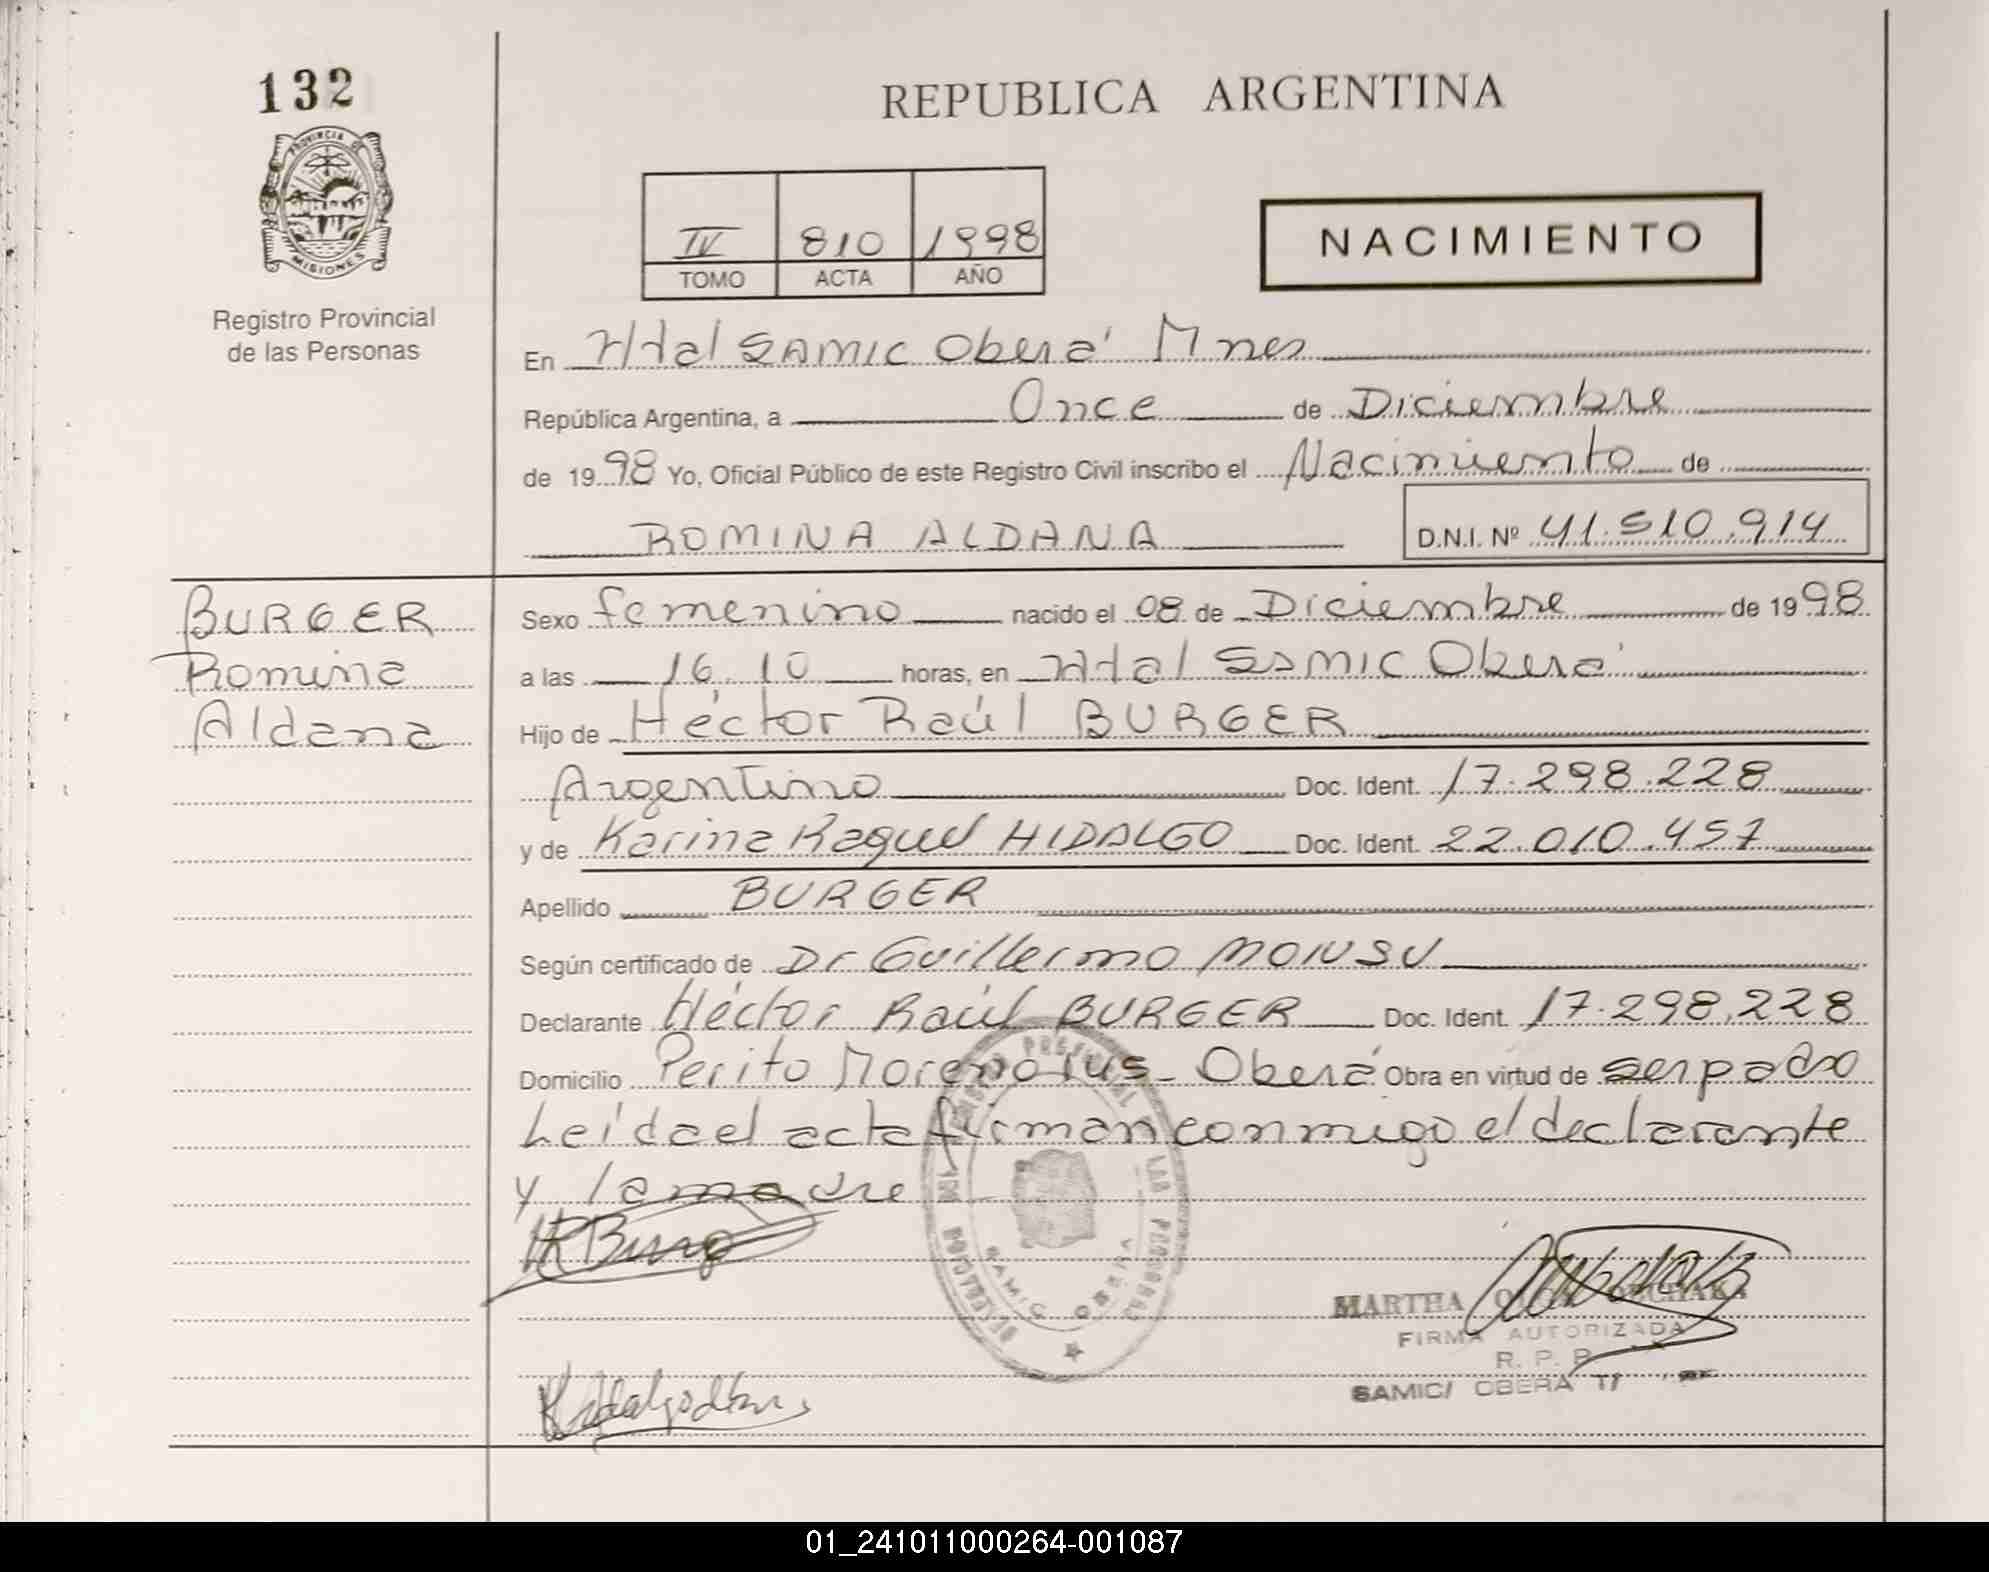 132
PROVINCIA DE
MISIONES
Registro Provincial
de las Personas
REPUBLICA ARGENTINA
IV 810 1998
TOMO ACTA AÑO
NACIMIENTO
En Htal SAMIC Oberá Mnes
República Argentina, a Once de Diciembre
de 1998 Yo, Oficial Público de este Registro Civil inscribo el Nacimiento de
ROMINA ALDANA D.N.I. Nº 41.510.914
BURGER
Romina
Aldana
Sexo femenino nacido el 08 de Diciembre de 1998
a las 16.10 horas, en Htal SAMIC Oberá
Hijo de Héctor Raúl BURGER
Argentino Doc. Ident. 17.298.228
y de Karina Raquel HIDALGO Doc. Ident. 22.010.457
Apellido BURGER
Según certificado de Dr Guillermo
Declarante Héctor Raúl BURGER Doc. Ident. 17.298.228
Domicilio Perito Moreno Oberá Obra en virtud de ser padre
Leída el acta firman conmigo el declarante
y la madre
HRBurg
MARTHA
FIRMA AUTORIZADA
R. P. P.
SAMIC/ OBERA
SAMIC OBERA
01_241011000264-001087